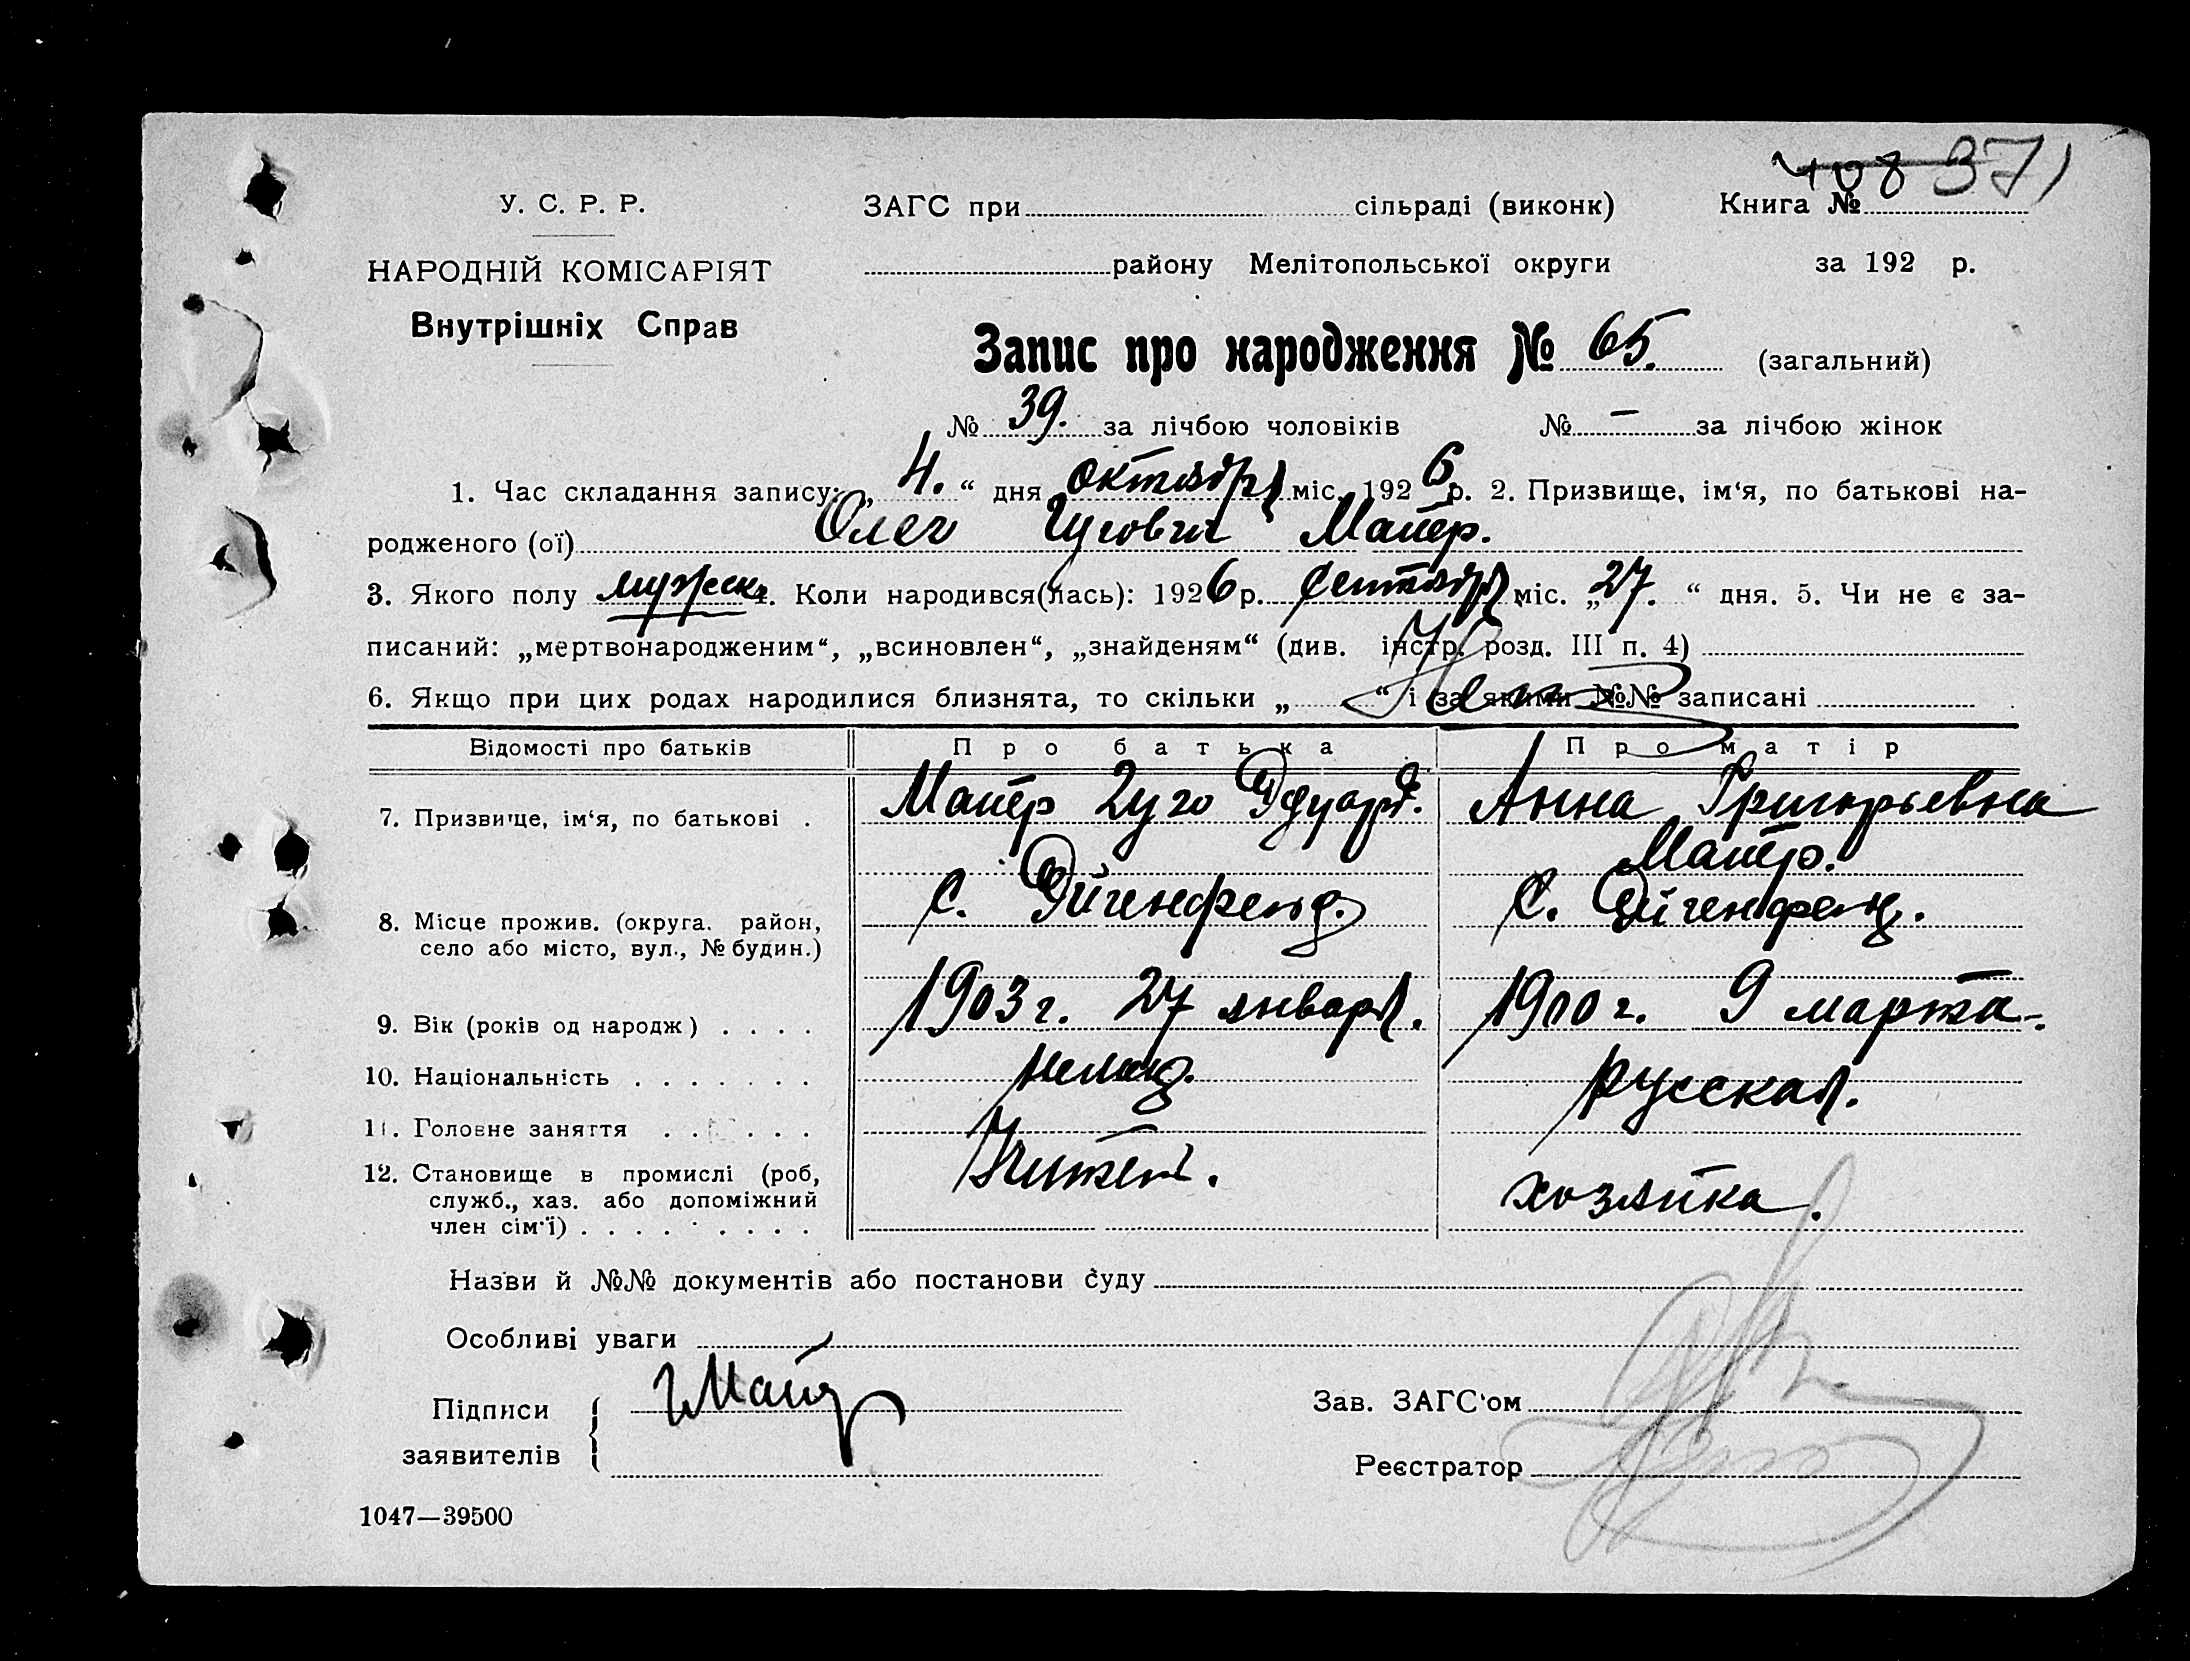 408 371
У. С. Р. Р. ЗАГС при сільраді (виконк) Книга №
НАРОДНІЙ КОМІСАРІЯТ района Мелітопольської округи за 192 р.
Внутрішніх Справ
Запис про народження № 65. (загальний)
№ 39. за лічбою чоловіків № — за лічбою жінок
1. Час складання запису: „ 4. “ дня октября міс. 1926 р. 2. Призвище, ім‘я, по батькові на-
родженого (ої) Олег Гугович Майер.
3. Якого полу мужеск. 4. Коли народився(лась): 1926 р. сентября міс. „27. “ дня. 5. Чи не є за-
писаний: „мертвонародженим“, „всиновлен“, „знайденям“ (див. інстр. розд. III п. 4)
6. Якщо при цих родах народилися близнята, то скільки „ “ і за якими №№ записані
Нет
Відомості про батьків Про батька Про матір
7. Призвище, ім‘я, по батькові . Майер Гуго Эдуард. Анна Григорьевна
Майер.
8. Місце прожив. (округа. район, с. Эйгенфельд. с. Эйгенфельд.
село або місто, вул., № будин.)
9. Вік (років од народж) . . . . 1903 г. 27 января. 1900 г. 9 марта.
10. Національність . . . . . . . немец. русская.
11. Головне заняття . . . . . .
12. Становище в промислі (роб, Учитель. хозяйка.
служб., хаз. або допоміжний
член сім‘ї) . . . . . . . . .
Назви й №№ документів або постанови суду
Особливі уваги
Підписи Г Майер Зав. ЗАГС‘ом
заявителів Реєстратор
1047—39500